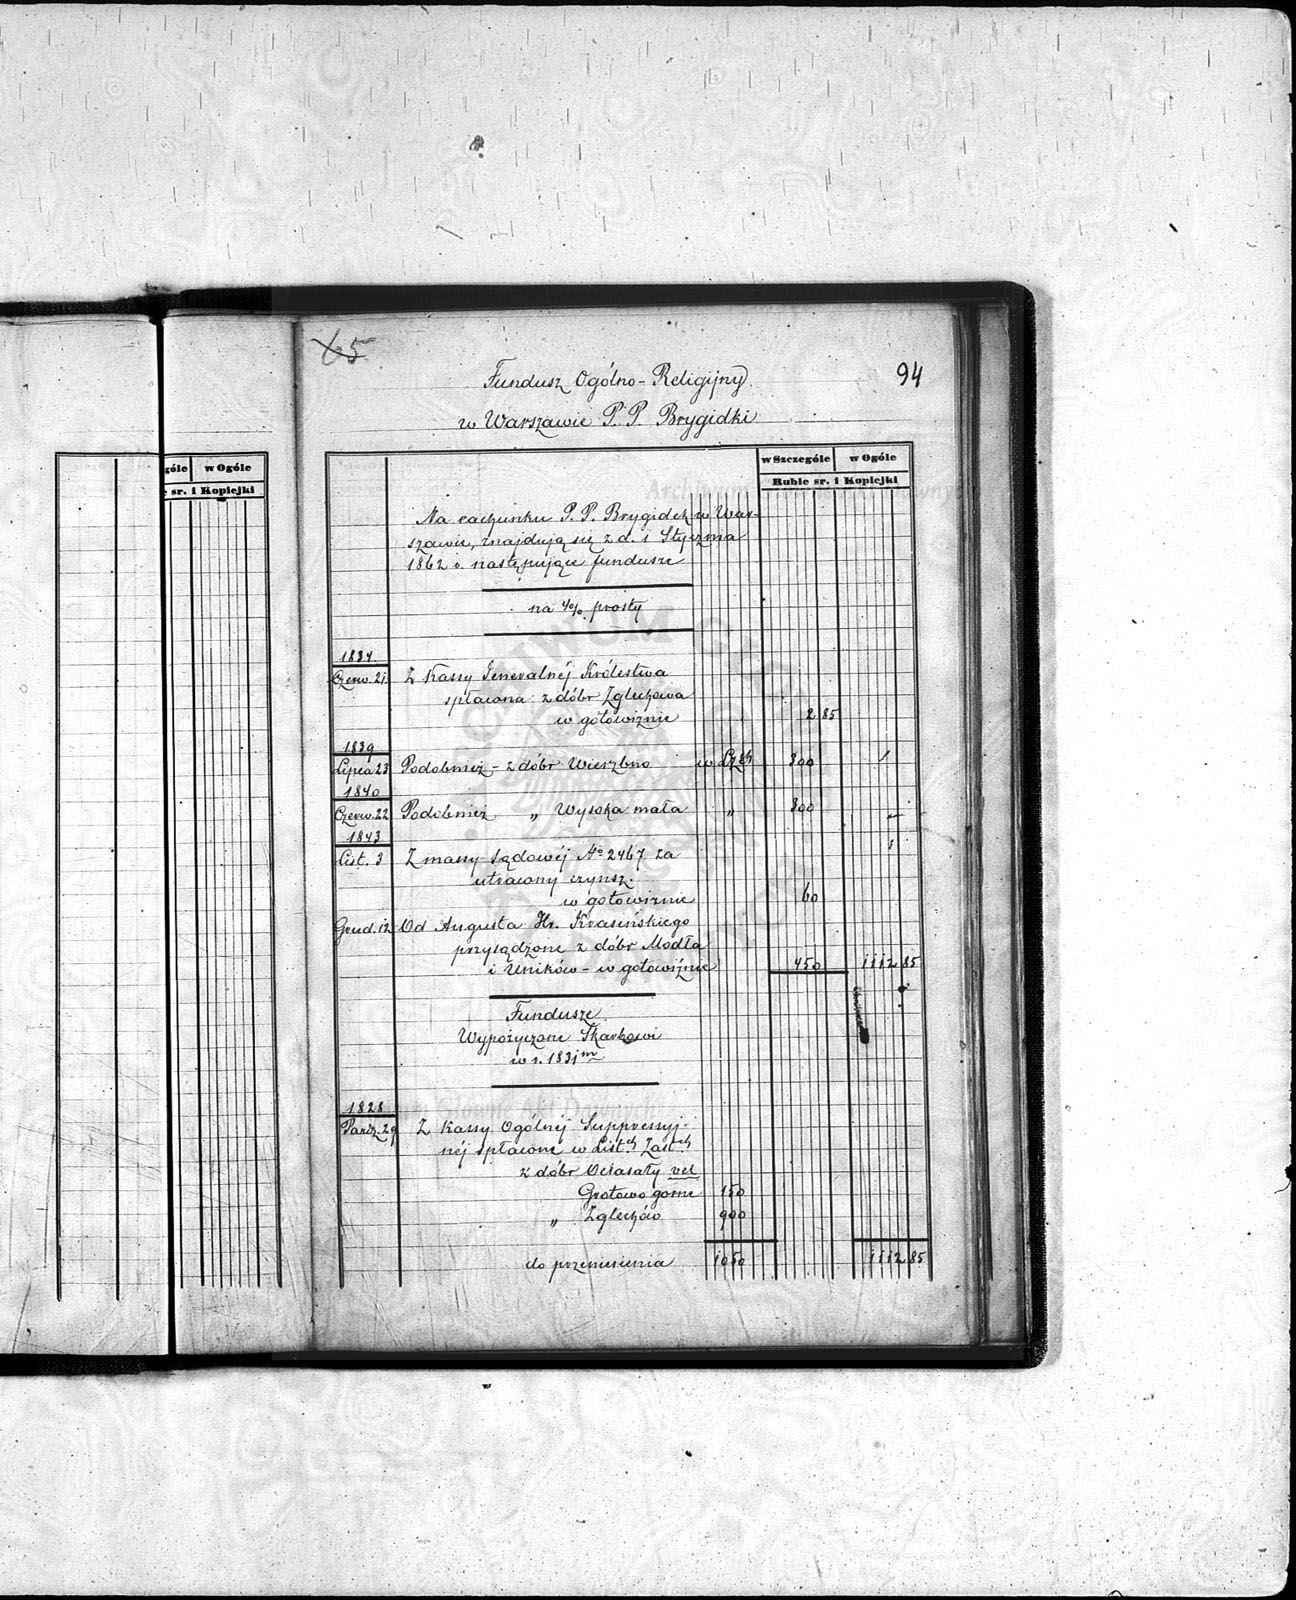 65
94
Fundusz Ogólno-Religijny
w Warszawie P. P. Brygidki
góle w Ogóle
sr. i Kopiejki
w Szczególe w Ogóle
Ruble sr. i Kopiejki
Na rachunku P. P. Brygidek w War-
szawie, znajdują się z d. 1 Stycznia
1862 r. następujące fundusze
na 4% prosty
1834
Czerw. 21 Z Kassy Jeneralnéj Królestwa
spłacona z dóbr Zglechowa
w gotowiźnie 2 85
1839
Lipca 23 Podobnież - z dóbr Wierzbno w Lzch 300
1840
Czerw. 22 Podobnież „ Wysoka mała „ 300
1843
List. 3 Z massy sądowéj No 2467 za
utracony czynsz
w gotowiznie 60
Grud. 12 Od Augusta Hr. Krasińskiego
przysądzone z dóbr Modła
i Uników - w gotowiźnie 450 1112 85
Fundusze
Wypożyczone Skarbowi
w r. 1831m
1828
Paźdz. 29 Z Kassy Ogólnéj Suppressyj-
néj spłacone w List.ch Zast.ch
z dóbr Ociasały vel
Grotowo górne 150
„ Zglechów 900
do przeniesienia 1050 1112 85